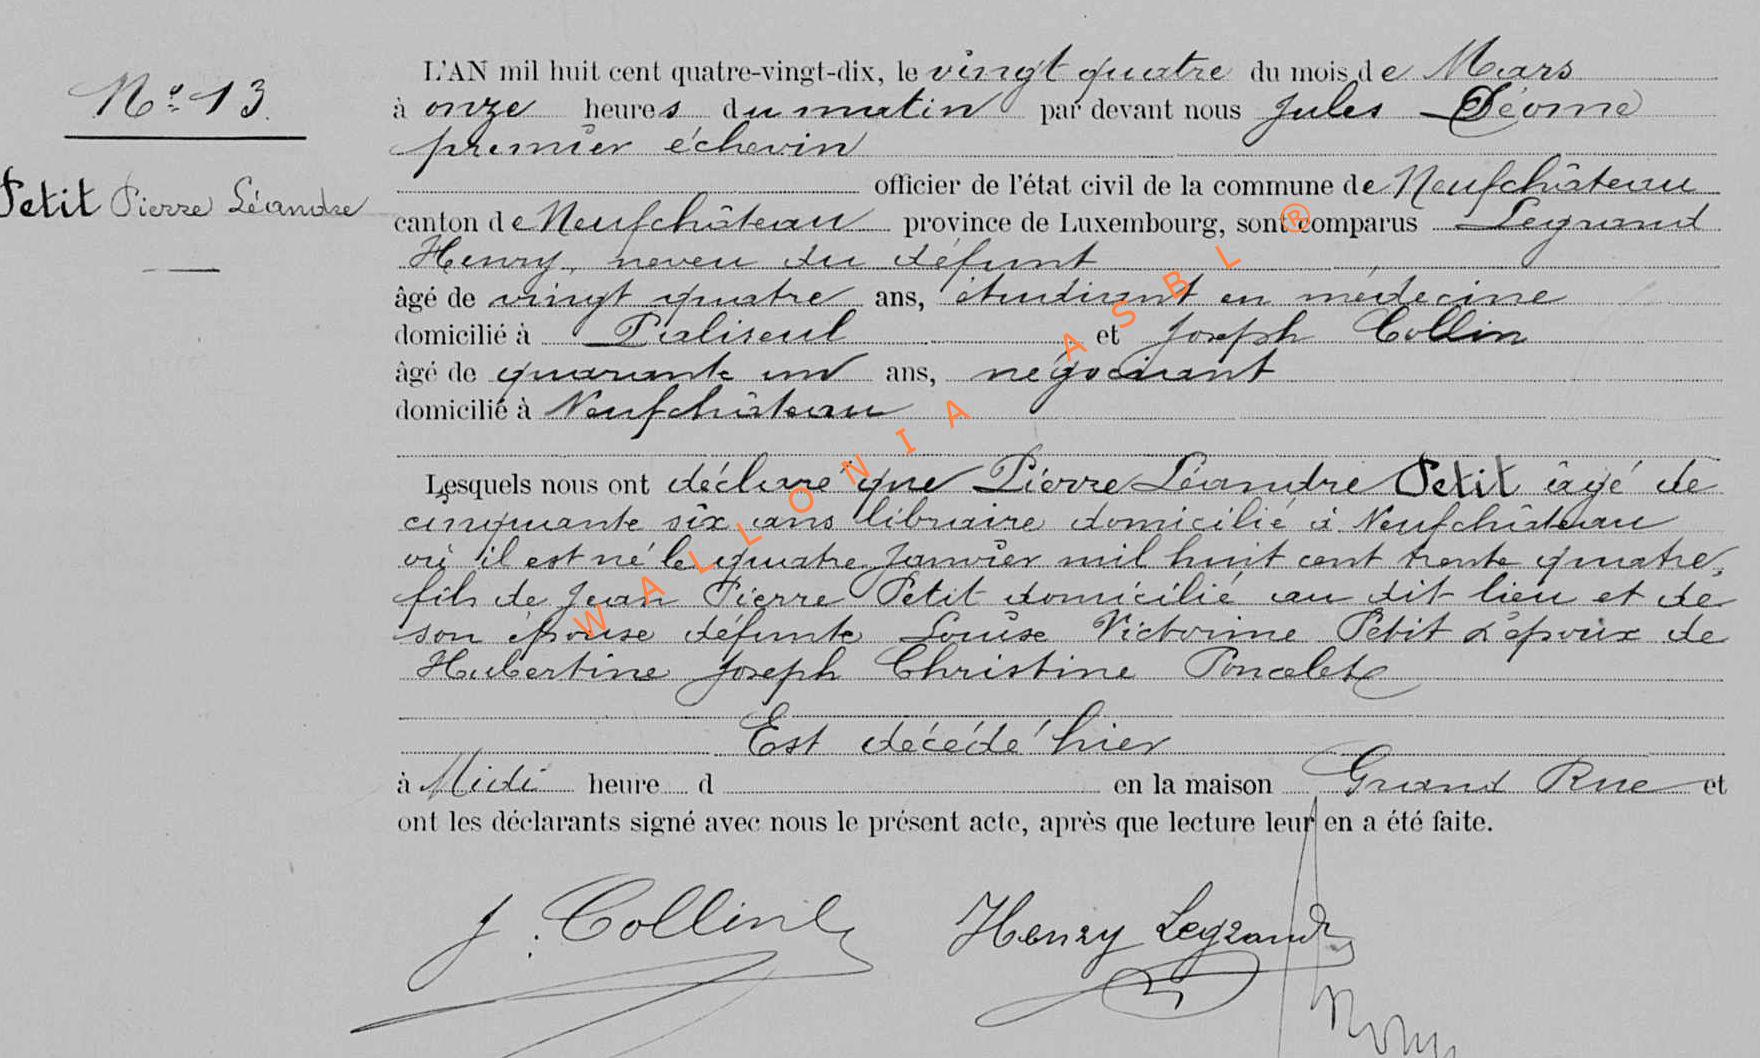 N° 13.
Petit Pierre Léandre
L'AN mil huit cent quatre-vingt-dix, le vingt quatre du mois de Mars
à onze heures du matin par devant nous Jules Déome
premier échevin
officier de l'état civil de la commune de Neufchâteau
canton de Neufchâteau province de Luxembourg, sont comparus Legrand
Henry, neveu du défunt
âgé de vingt quatre ans, étudiant en médecine
domicilié à Paliseul et Joseph Collin
âgé de quarante un ans, négociant
domicilié à Neufchâteau
Lesquels nous ont déclaré que Pierre Léandre Petit âgé de
cinquante six ans libraire domicilié à Neufchâteau
où il est né le quatre Janvier mil huit cent trente quatre,
fils de Jean Pierre Petit domicilié au dit lieu et de
son épouse défunte Louise Victorine Petit & époux de
Hubertine Joseph Christine Poncelet
Est décédé hier
à Midi heure d en la maison Grand Rue et
ont les déclarants signé avec nous le présent acte, après que lecture leur en a été faite.
J. Collin
Henry Legrand
WALLONIA ASBL ®